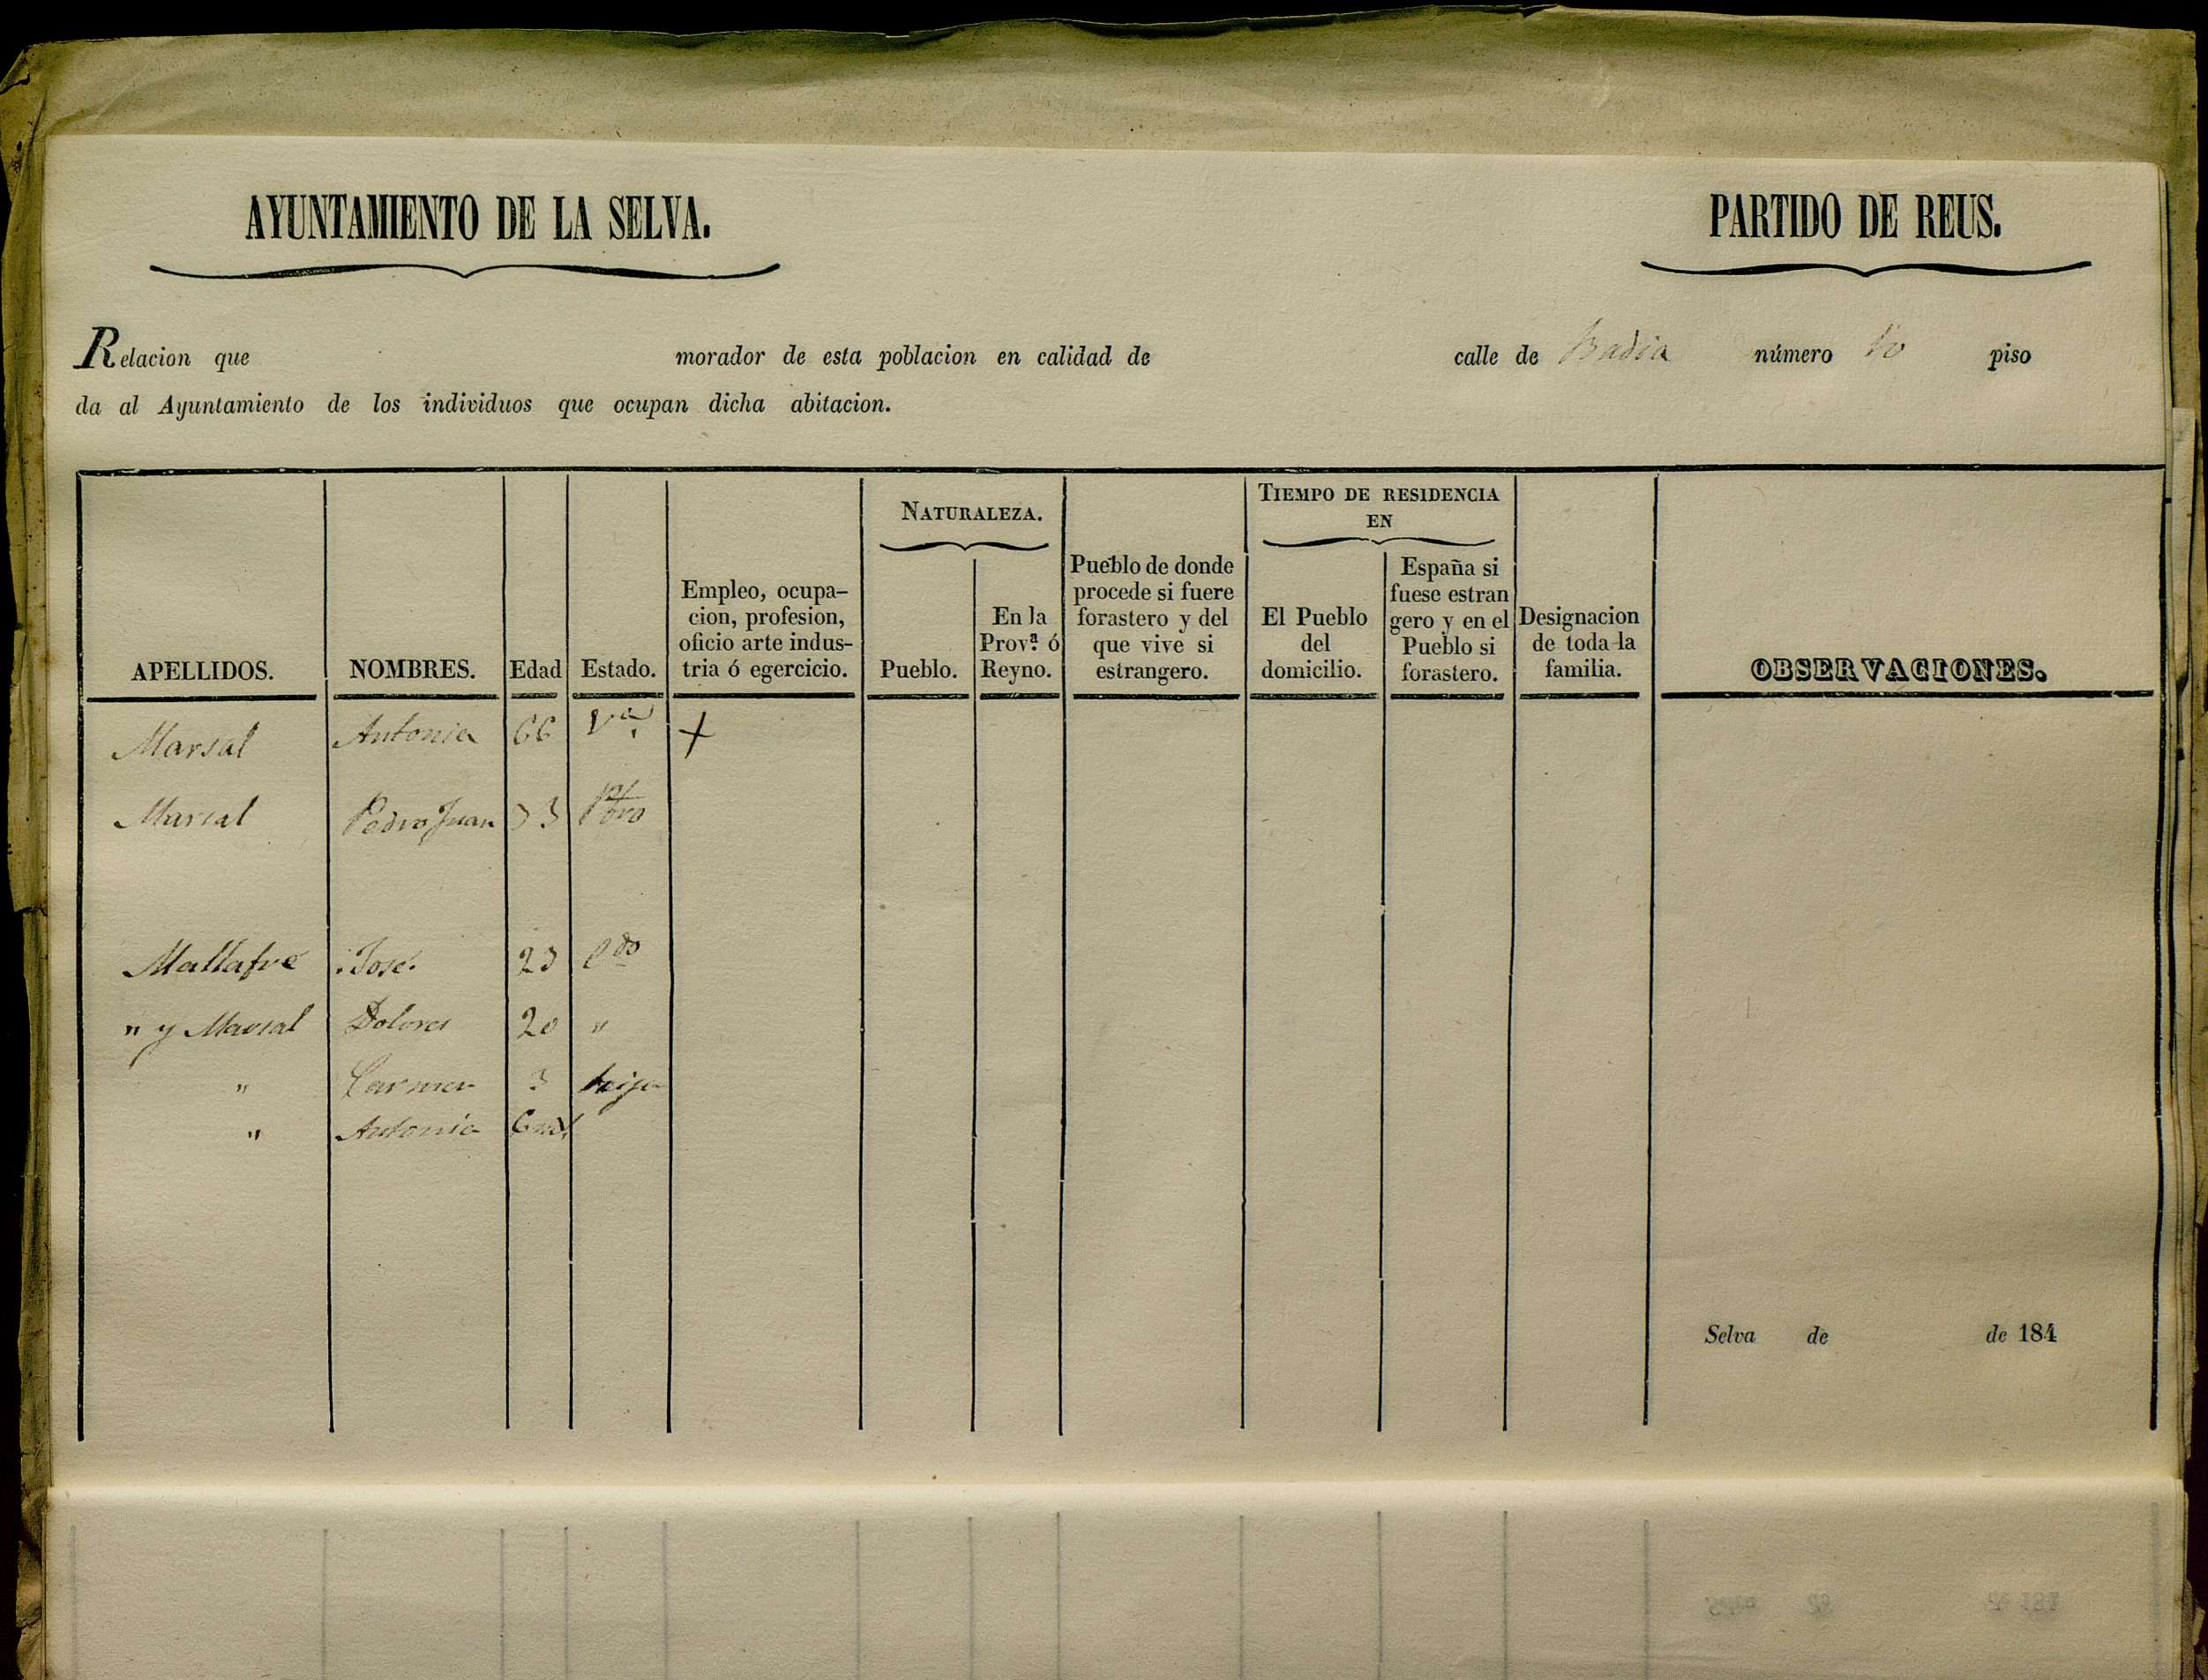 AYUNTAMIENTO DE LA SELVA.
PARTIDO DE REUS.
Relacion que morador de esta poblacion en calidad de calle de Badia número 10 piso
da al Ayuntamiento de los individuos que ocupan dicha abitacion.
APELLIDOS.
NOMBRES.
Edad
Estado.
Empleo, ocupa-
cion, profesion,
oficio arte indus-
tria ó egercicio.
NATURALEZA.
Pueblo.
En la
Prov.ª ó
Reyno.
Pueblo de donde
procede si fuere
forastero y del
que vive si
estrangero.
TIEMPO DE RESIDENCIA
EN
El Pueblo
del
domicilio.
España si
fuese estran
gero y en el
Pueblo si
forastero.
Designacion
de toda la
familia.
OBSERVACIONES.
Marsal Antonia 66 V.a +
Marsal Pedro Juan 33
Mallafré José 23 Cdo
" y Marsal Dolores 20 "
" Carmen 3 hija
" Antonia
Selva de de 184